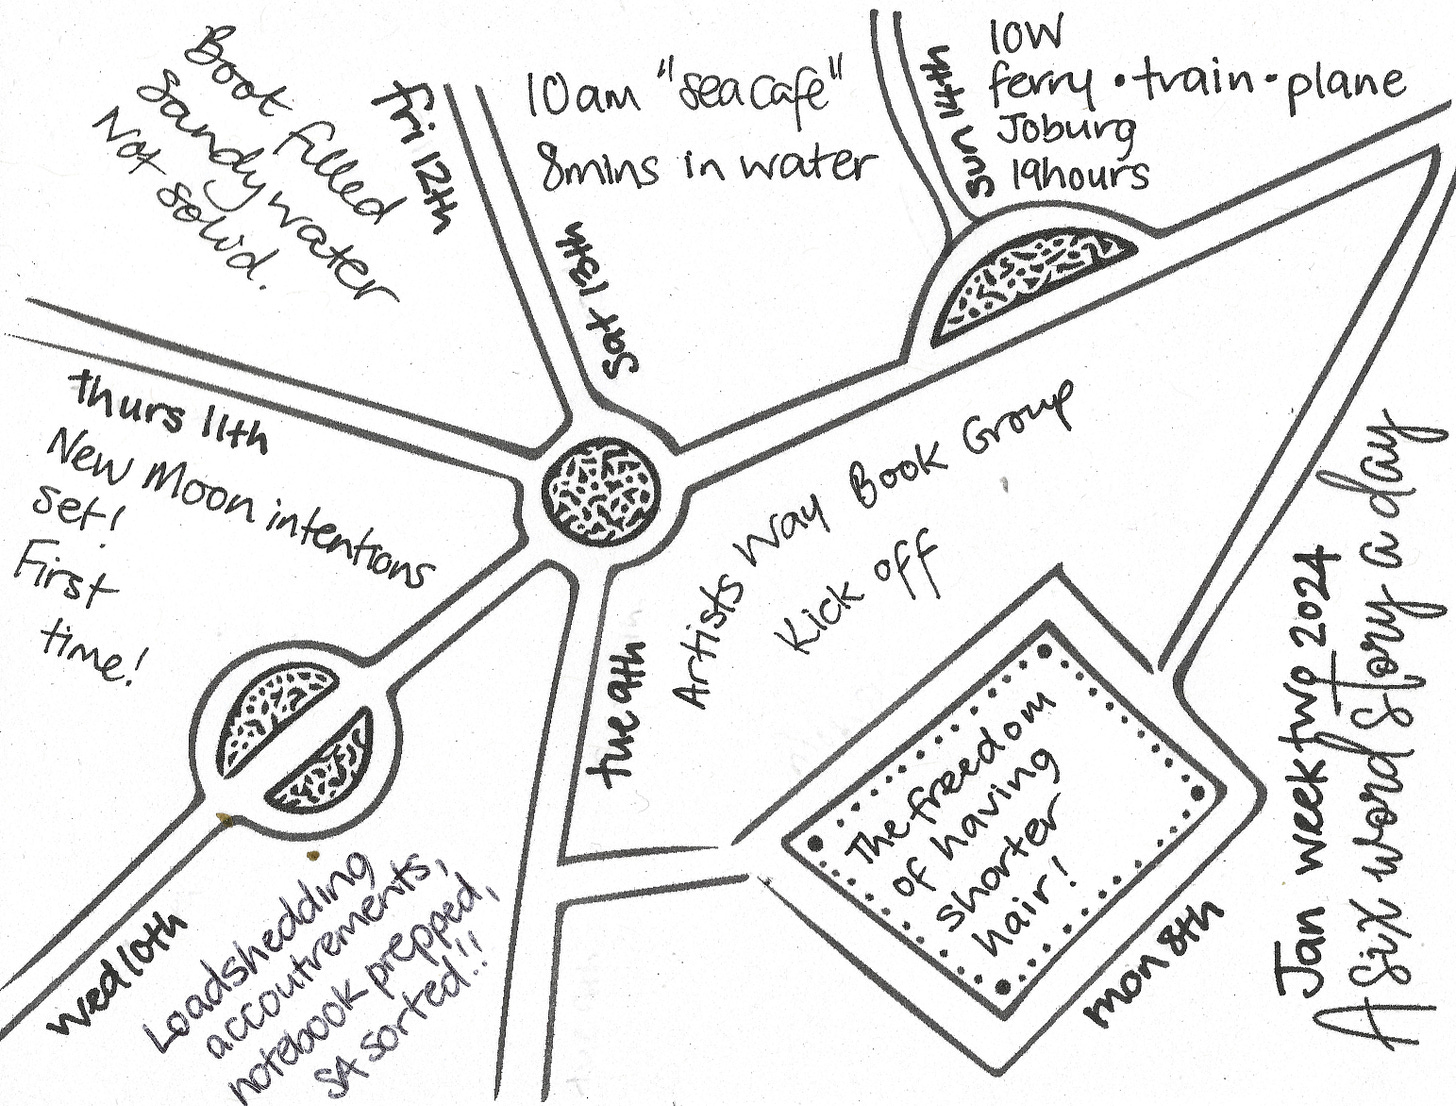 Jan week two 2024
A six word story a day
mon 8th
The freedom
of having
shorter
hair!
tue 9th
Artists Way Book Group
Kick off
wed 10th
Loadshedding
accoutrements,
notebook prepped,
SA sorted!!
thurs 11th
New Moon intentions
set!
First
time!
fri 12th
Boot filled
sandy water
Not solid.
sat 13th
10am "sea cafe"
8mins in water
sun 14th
10W
ferry • train • plane
Joburg
19hours